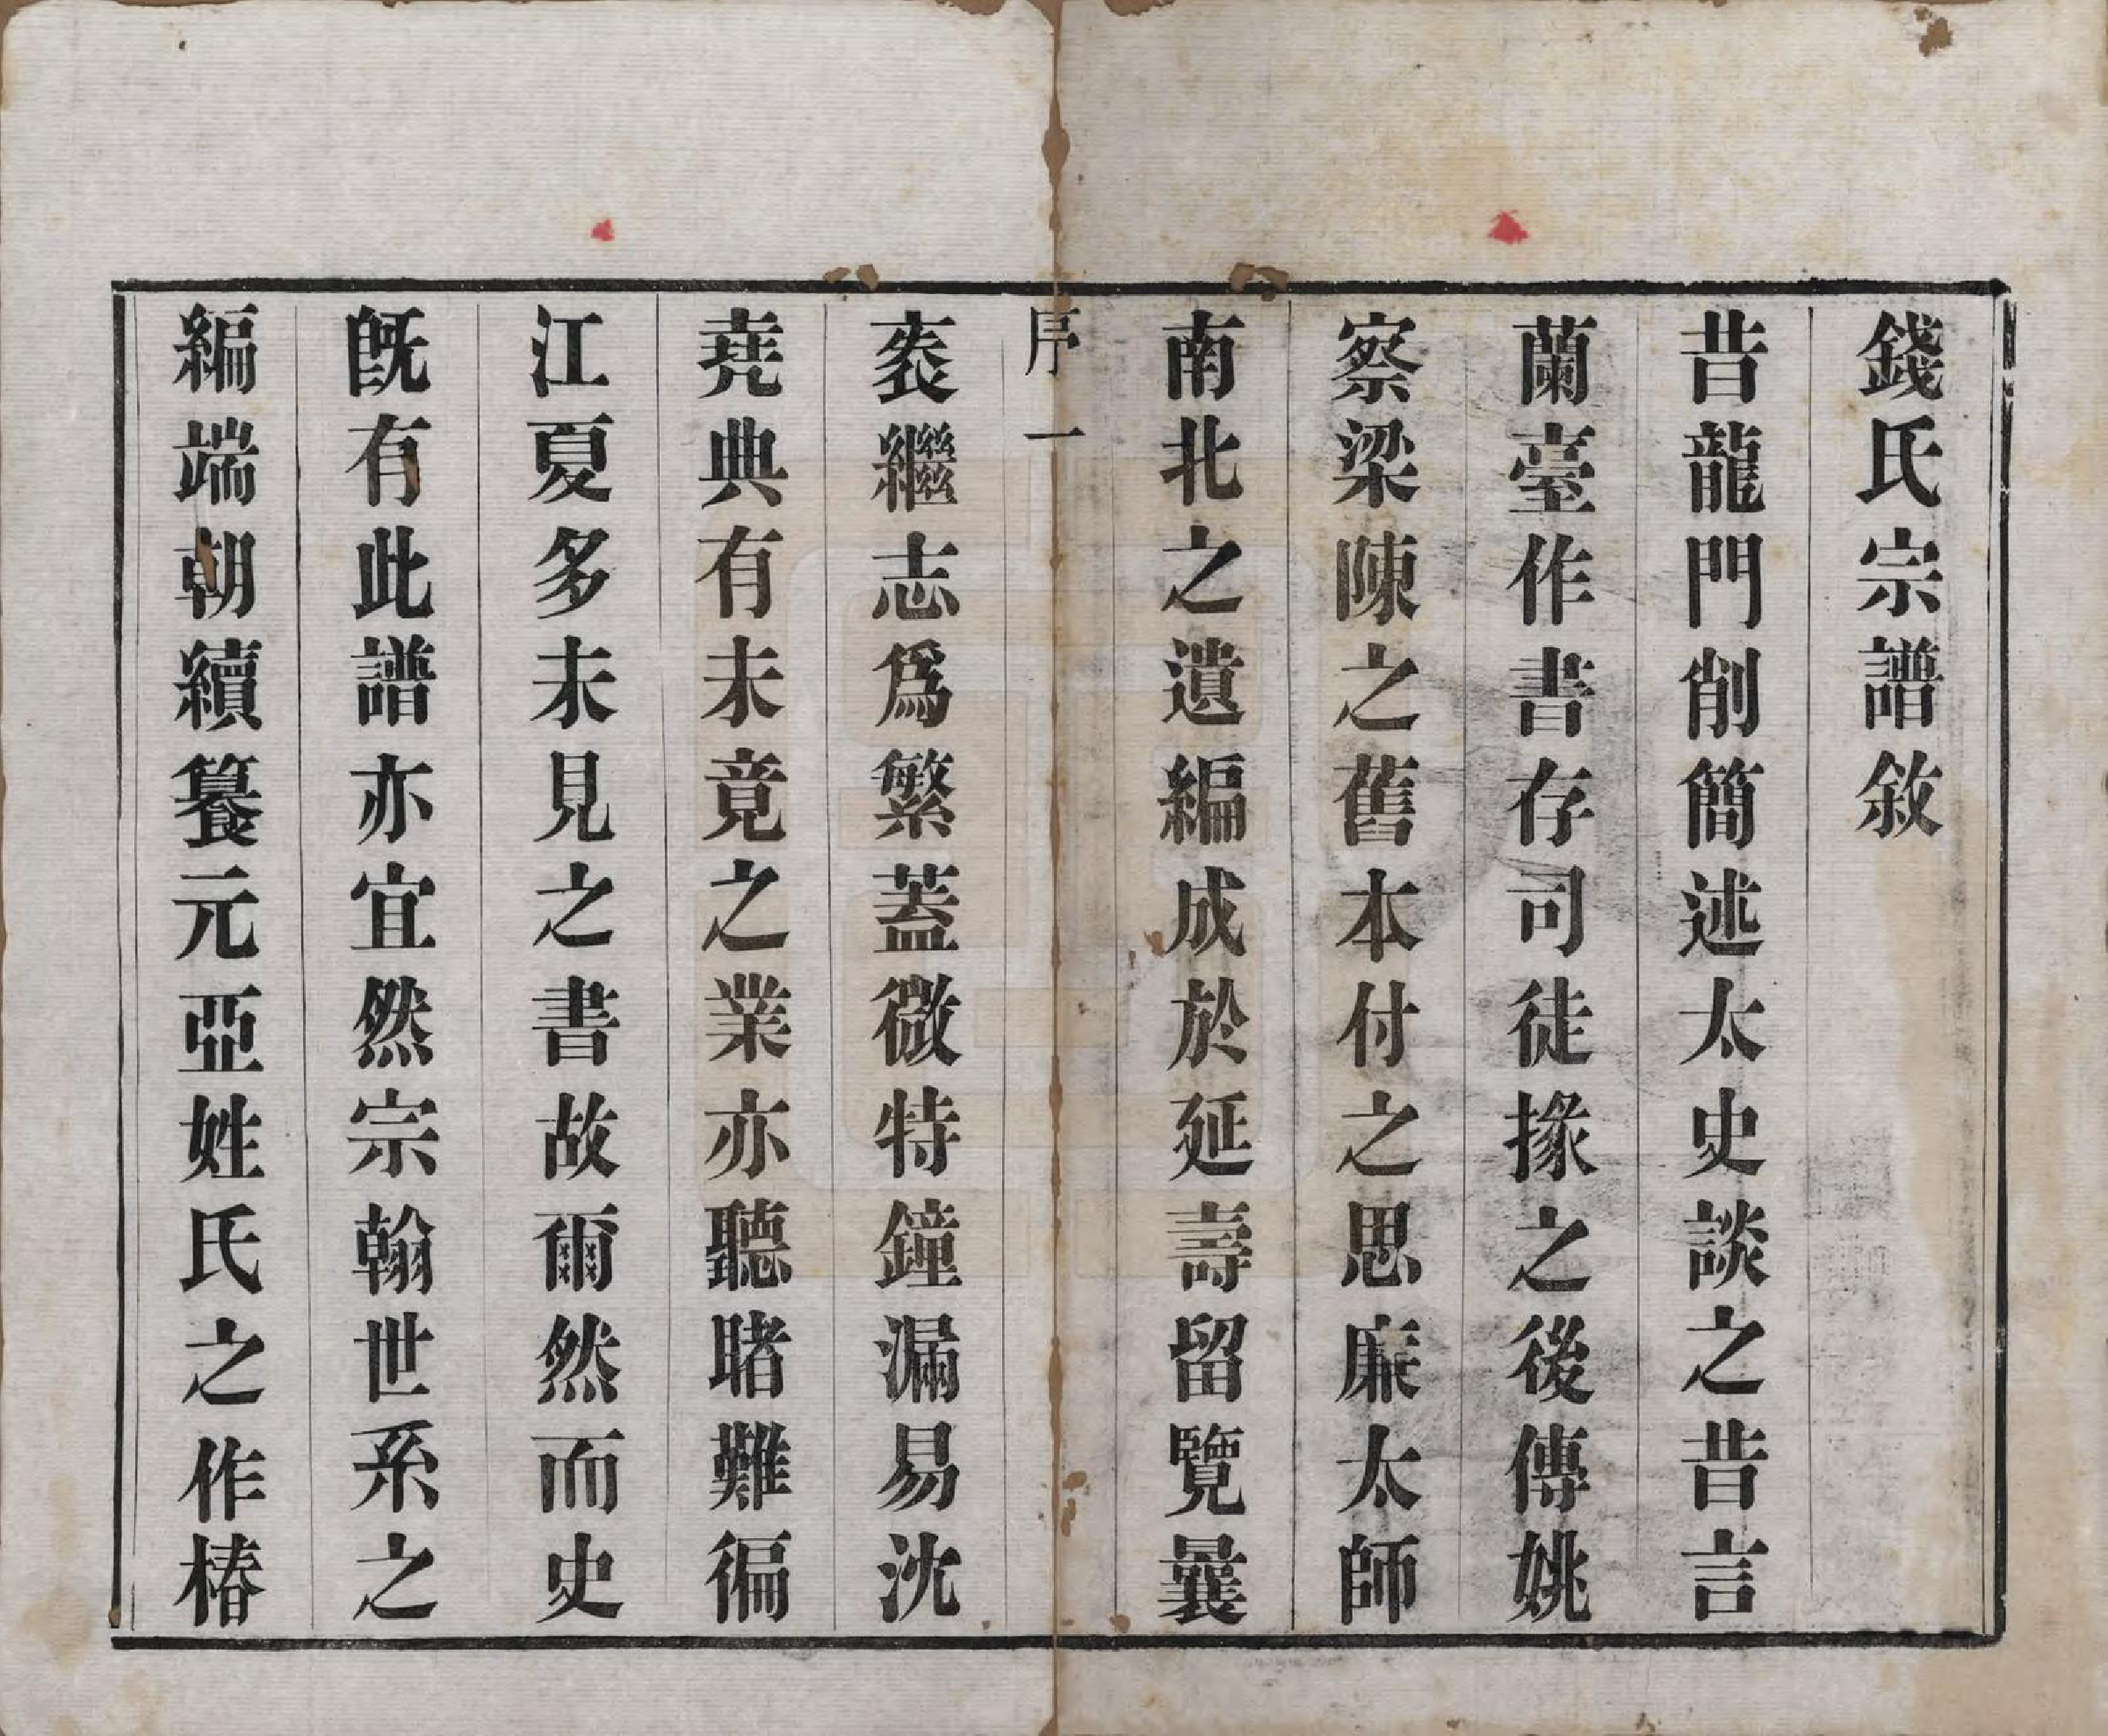 錢氏宗譜敘
昔龍門削簡述太史談之昔言
蘭臺作書存司徒掾之後傳姚
察梁陳之舊本付之思廉太師
南北之遺編成於延壽留覽曩
序一
袠繼志爲繁蓋微特鐘漏易沈
堯典有未竟之業亦聽睹難徧
江夏多未見之書故爾然而史
旣有此譜亦宜然宗翰世系之
編端朝續籑元亞姓氏之作椿